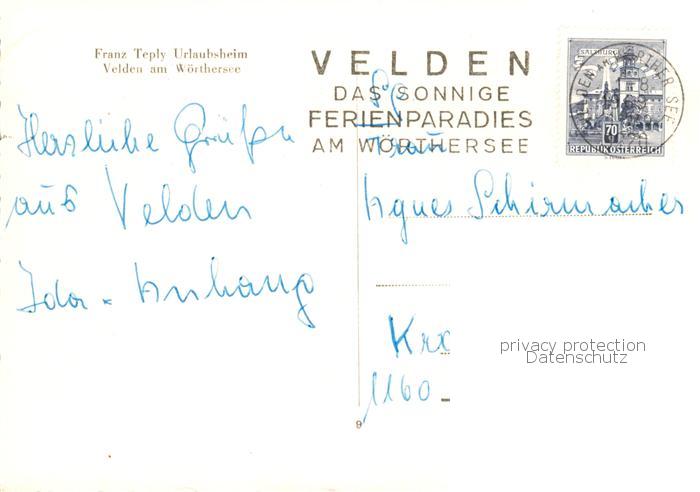 Franz Teply Urlaubsheim
Velden am Wörthersee
VELDEN
DAS SONNIGE
FERIENPARADIES
AM WÖRTHERSEE
SALZBURG
70
REPUBLIK ÖSTERREICH
Herzliche Grüße
aus Velden
Ida + Anhang
Frau
Agnes Schirmacher
1160
privacy protection
Datenschutz
9